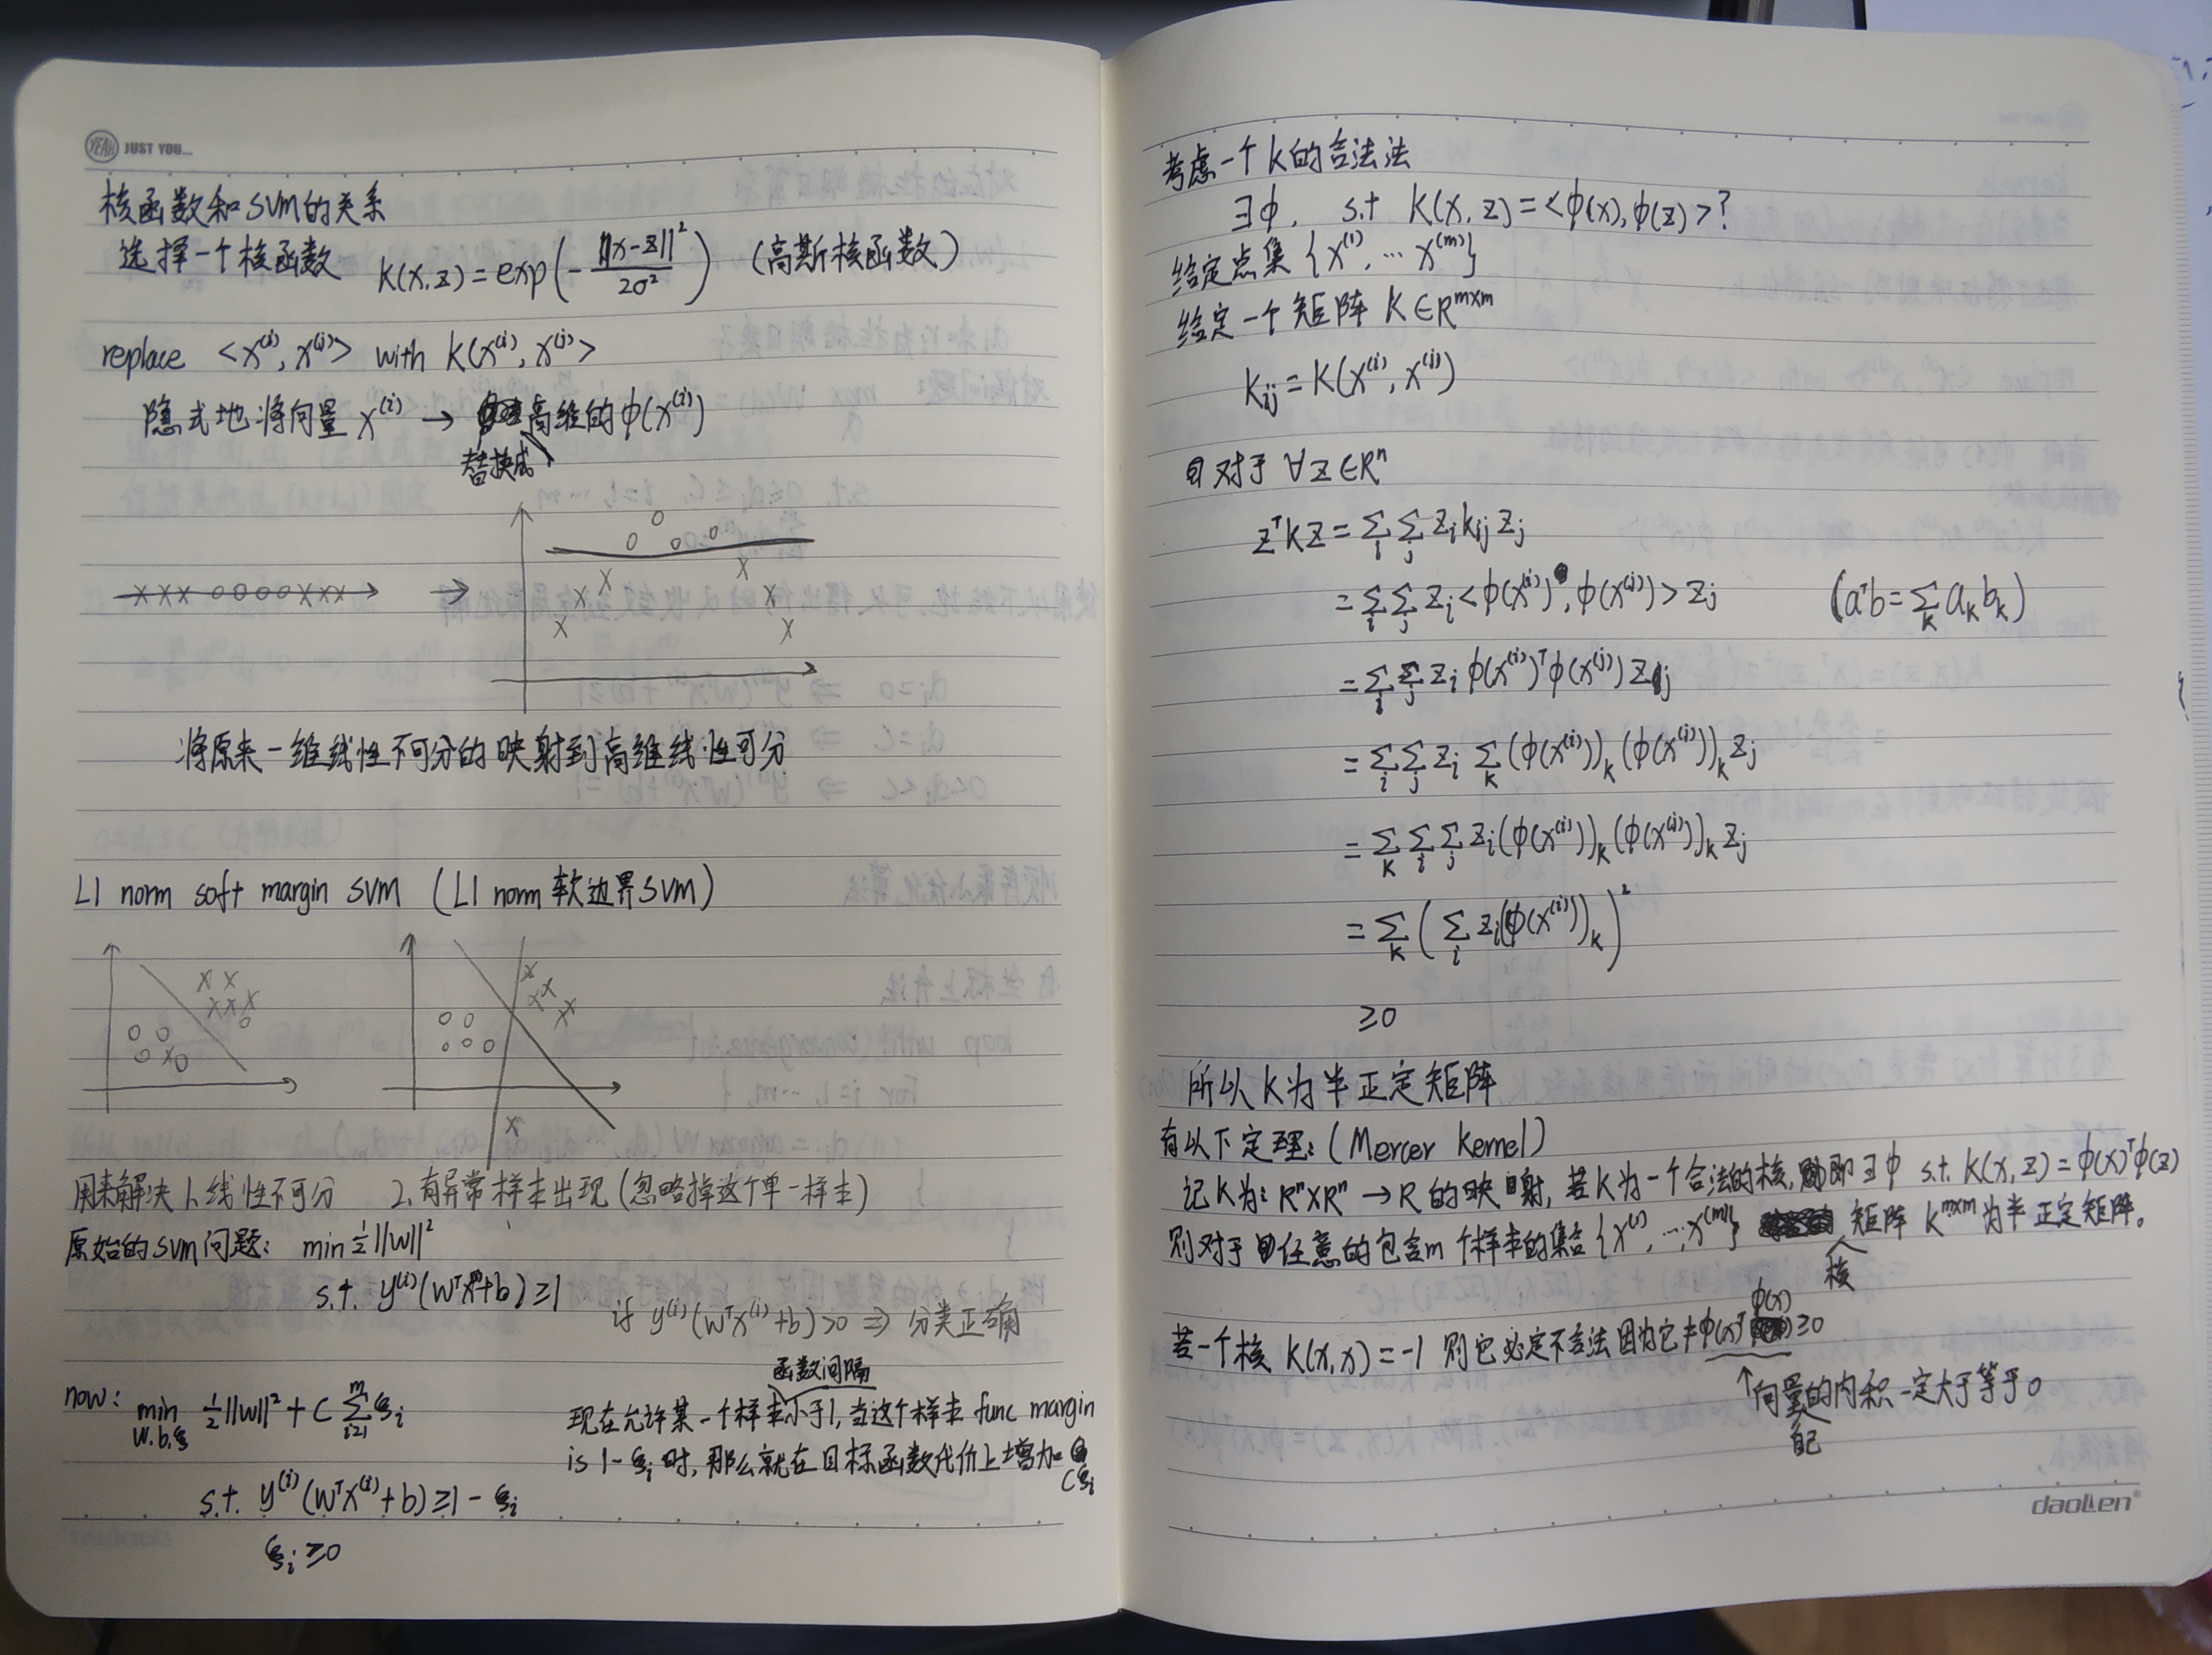 YEAH JUST YOU...
核函数和SVM的关系
选择一个核函数 K(x,z)=exp(-||x-z||²/2σ²) (高斯核函数)
replace <x⁽ⁱ⁾, x⁽ʲ⁾> with K(x⁽ⁱ⁾, x⁽ʲ⁾>
隐式地将向量 x⁽ⁱ⁾ → 高维的φ(x⁽ⁱ⁾)
替换成
将原来一维线性不可分的映射到高维线性可分
L1 norm soft margin SVM (L1 norm 软边界SVM)
用来解决 1.线性不可分 2.有异常样本出现(忽略掉这个单一样本)
原始的SVM问题: min ½||w||²
s.t. y⁽ⁱ⁾(wᵀx⁽ⁱ⁾+b)≥1
if y⁽ⁱ⁾(wᵀx⁽ⁱ⁾+b)>0 ⇒ 分类正确
now: min w.b.ξ ½||w||² + C Σᵢ₌₁ᵐ ξᵢ
s.t. y⁽ⁱ⁾(wᵀx⁽ⁱ⁾+b)≥1-ξᵢ
ξᵢ≥0
函数间隔
现在允许某一个样本小于1,当这个样本 func margin
is 1-ξᵢ时,那么就在目标函数代价上增加
Cξᵢ
考虑一个K的合法法
∃φ, s.t K(x,z)=<φ(x),φ(z)>?
给定点集{x⁽¹⁾,…x⁽ᵐ⁾}
给定一个矩阵 K∈Rᵐˣᵐ
Kᵢⱼ=K(x⁽ⁱ⁾, x⁽ʲ⁾)
对于 ∀z∈Rⁿ
zᵀKz=ΣᵢΣⱼ zᵢkᵢⱼzⱼ
=ΣᵢΣⱼ zᵢ<φ(x⁽ⁱ⁾),φ(x⁽ʲ⁾)>zⱼ (aᵀb=Σₖaₖbₖ)
=ΣᵢΣⱼ zᵢφ(x⁽ⁱ⁾)ᵀφ(x⁽ʲ⁾)zⱼ
=ΣᵢΣⱼ zᵢ Σₖ(φ(x⁽ⁱ⁾))ₖ(φ(x⁽ʲ⁾))ₖzⱼ
=ΣₖΣᵢΣⱼ zᵢ(φ(x⁽ⁱ⁾))ₖ(φ(x⁽ʲ⁾))ₖzⱼ
=Σₖ(Σᵢ zᵢ(φ(x⁽ⁱ⁾))ₖ)²
≥0
所以K为半正定矩阵
有以下定理:(Mercer kernel)
记K为: Rⁿ×Rⁿ→R的映射,若K为一个合法的核,即∃φ s.t. K(x,z)=φ(x)ᵀφ(z)
则对于任意的包含m个样本的集合{x⁽¹⁾,…,x⁽ᵐ⁾} 矩阵 Kᵐˣᵐ为半正定矩阵。
核
φ(x)
若一个核 K(x,x)=-1 则它必定不合法因为它≠φ(x)ᵀ ≥0
↑向量的内积一定大于等于0
自己
daoLen®